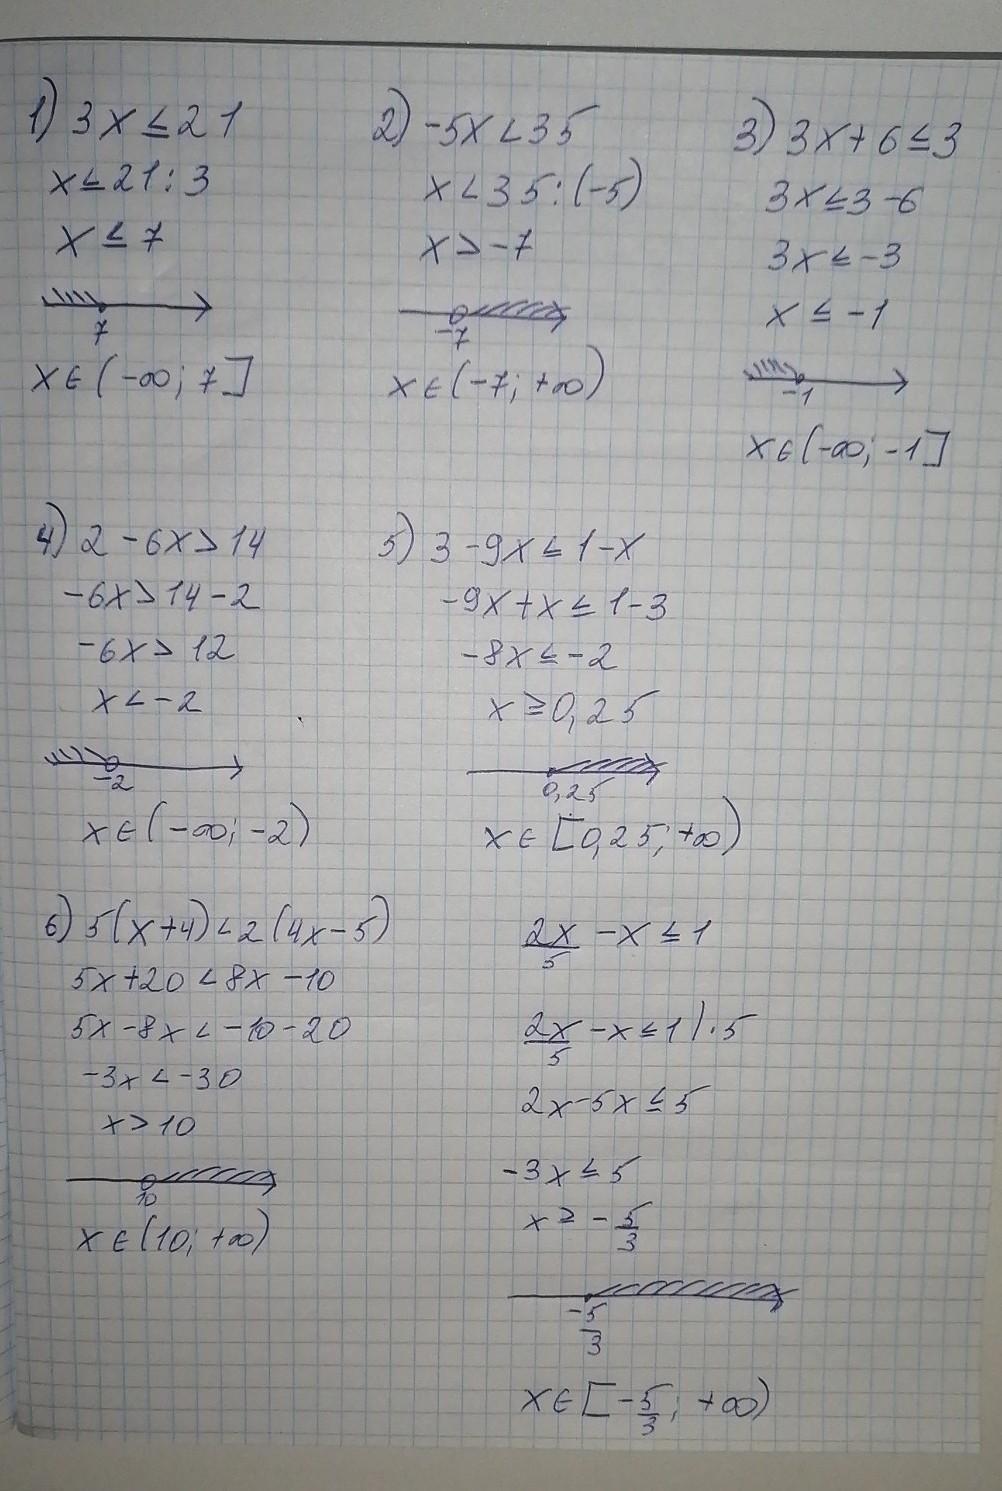 1) 3x ≤ 21
x ≤ 21 : 3
x ≤ 7
7
x ∈ (-∞; 7]
2) -5x < 35
x < 35 : (-5)
x > -7
-7
x ∈ (-7; +∞)
3) 3x + 6 ≤ 3
3x ≤ 3 - 6
3x ≤ -3
x ≤ -1
-1
x ∈ (-∞; -1]
4) 2 - 6x > 14
-6x > 14 - 2
-6x > 12
x < -2
-2
x ∈ (-∞; -2)
5) 3 - 9x ≤ 1 - x
-9x + x ≤ 1 - 3
-8x ≤ -2
x ≥ 0,25
0,25
x ∈ [0,25; +∞)
6) 5(x+4) < 2(4x-5)
5x + 20 < 8x - 10
5x - 8x < -10 - 20
-3x < -30
x > 10
10
x ∈ (10; +∞)
2x/5 - x ≤ 1
2x/5 - x ≤ 1 | · 5
2x - 5x ≤ 5
-3x ≤ 5
x ≥ -5/3
-5/3
x ∈ [-5/3; +∞)